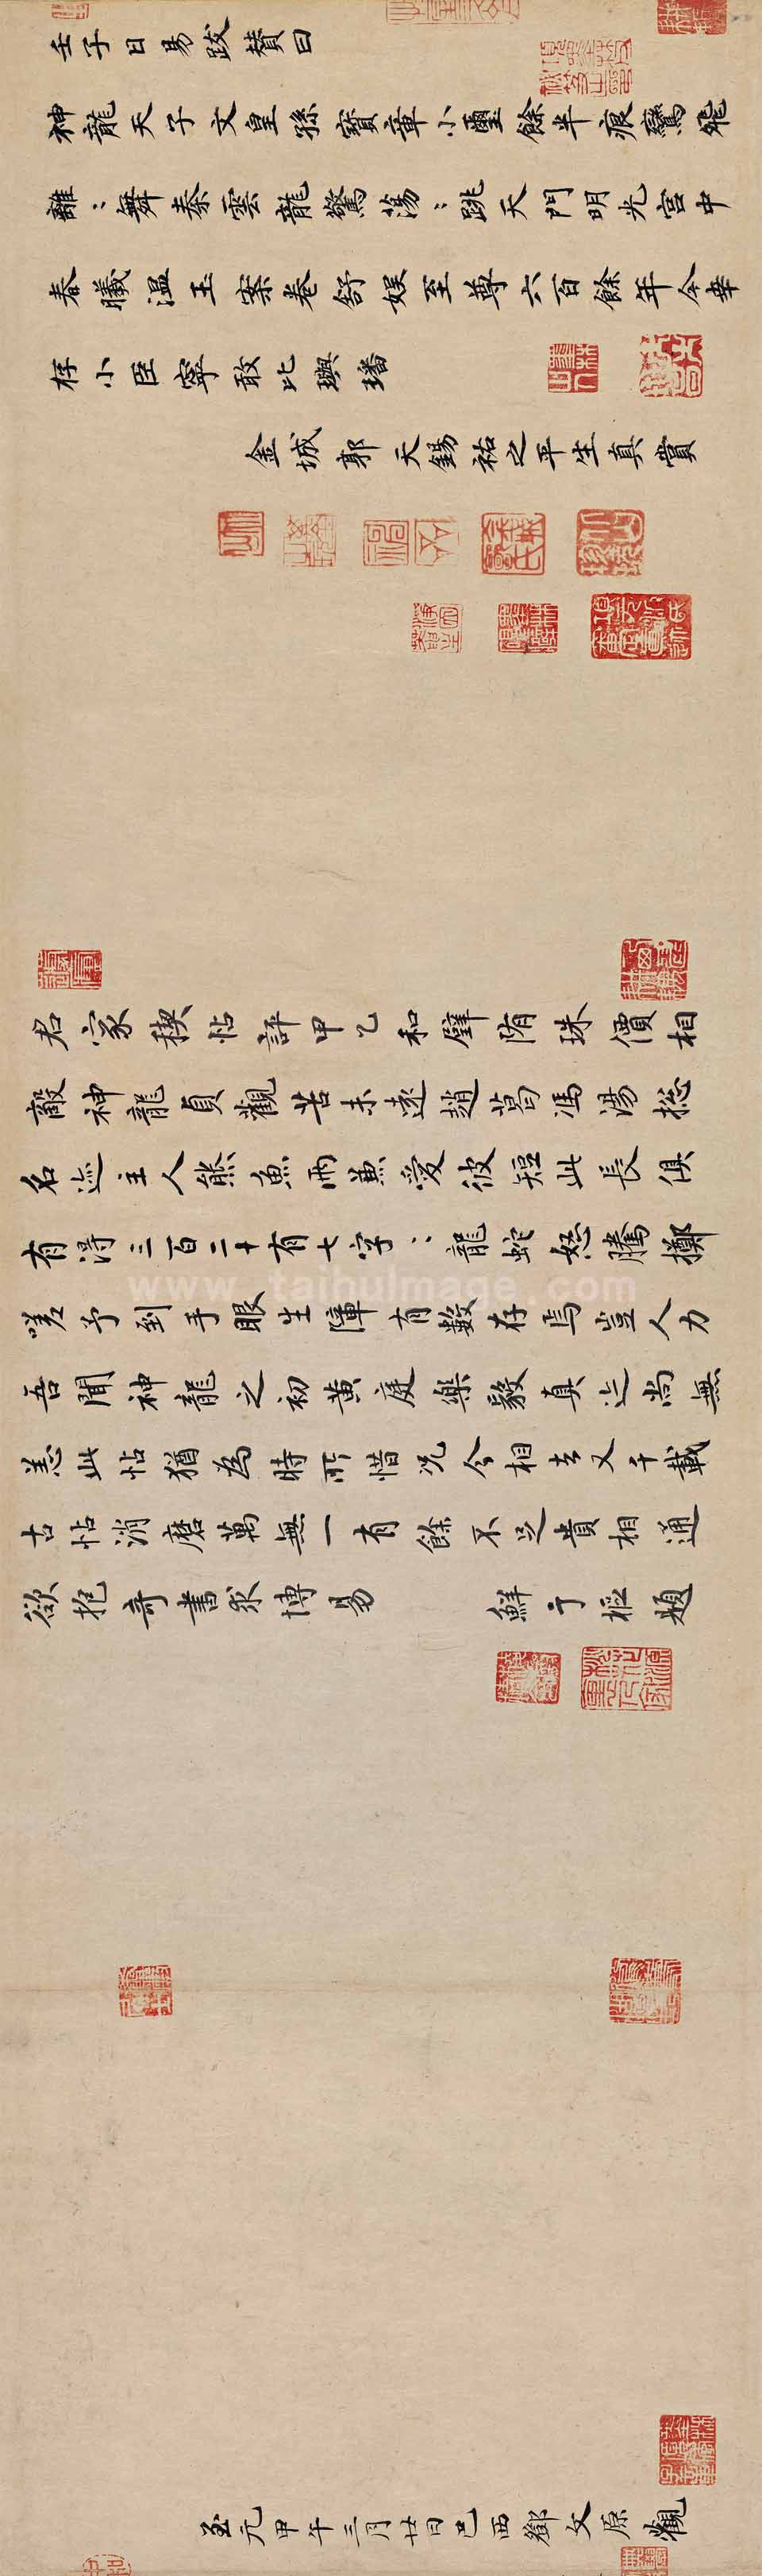 壬子日易跋贊曰
神龍天子文皇孫寶章小璽餘半痕鸞飛
離〻舞秦雲龍驚蕩〻跳天門明光宮中
春曦溫玉案卷舒娛至尊六百餘年今幸
存小臣寧敢比璵璠
金城郭天錫祐之平生真賞
君家稧帖評甲乙和璧隋珠價相
敵神龍貞觀苦未遠趙葛馮湯揔
名迹主人熊魚兩兼愛彼短此長俱
有得三百二十有七字〻龍蛇怒騰擲
嗟予到手眼生障有數存焉豈人力
吾聞神龍之初黃庭樂毅真迹尚無
恙此帖猶為時所惜况今相去又千載
古帖消磨萬無一有餘不足貴相通
欲抱奇書求博易 鮮于樞題
至元甲午三月廿日巳酉鄧文原觀
www.taibuimage.com